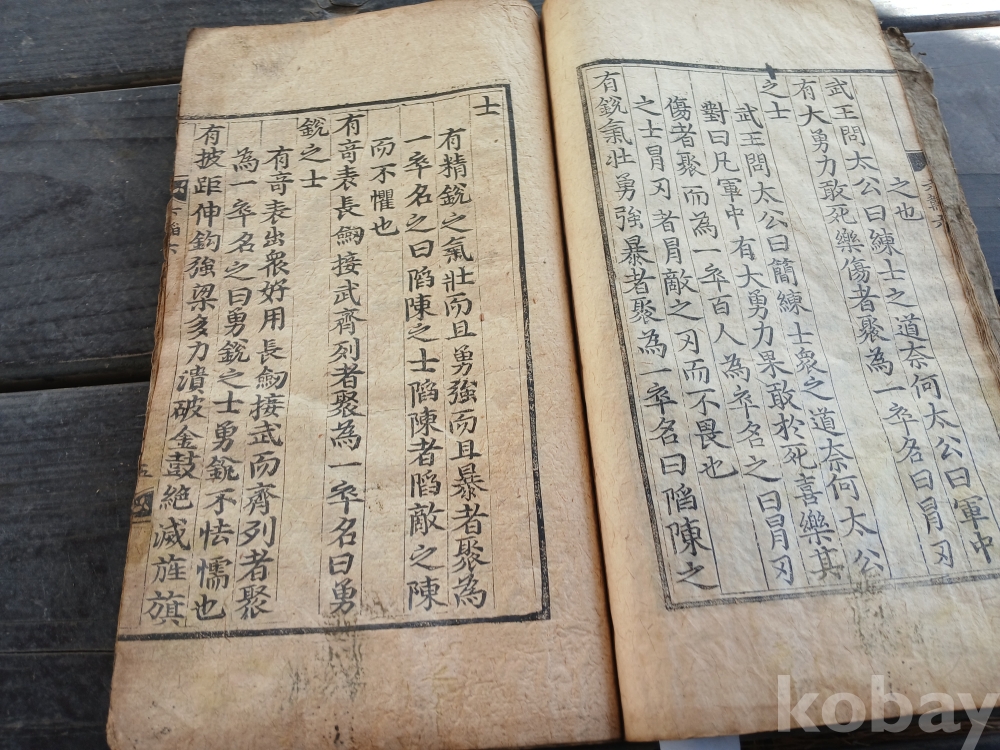 之也
武王問太公曰練士之道奈何太公曰軍中
有大勇力敢死樂傷者聚為一卒名曰冐刃
之士
武王問太公曰簡練士衆之道奈何太公
對曰凡軍中有大勇力果敢於死喜樂其
傷者聚而為一卒百人為卒名之曰冐刃
之士冐刃者冐敵之刃而不畏也
有銳氣壯勇強暴者聚為一卒名曰陷陳之
士
有精銳之氣壯而且勇強而且暴者聚為
一卒名之曰陷陳之士陷陳者陷敵之陳
而不懼也
有竒表長劒接武齊列者聚為一卒名曰勇
銳之士
有竒表出衆好用長劒接武而齊列者聚
為一卒名之曰勇銳之士勇銳不怯懦也
有披距伸鉤強梁多力潰破金鼓絶滅旌旗
kobay